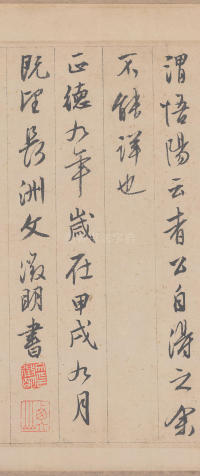 谓悟阳云者公自得之余
不能详也
正德九年岁在甲戌九月
既望长洲文徵明书